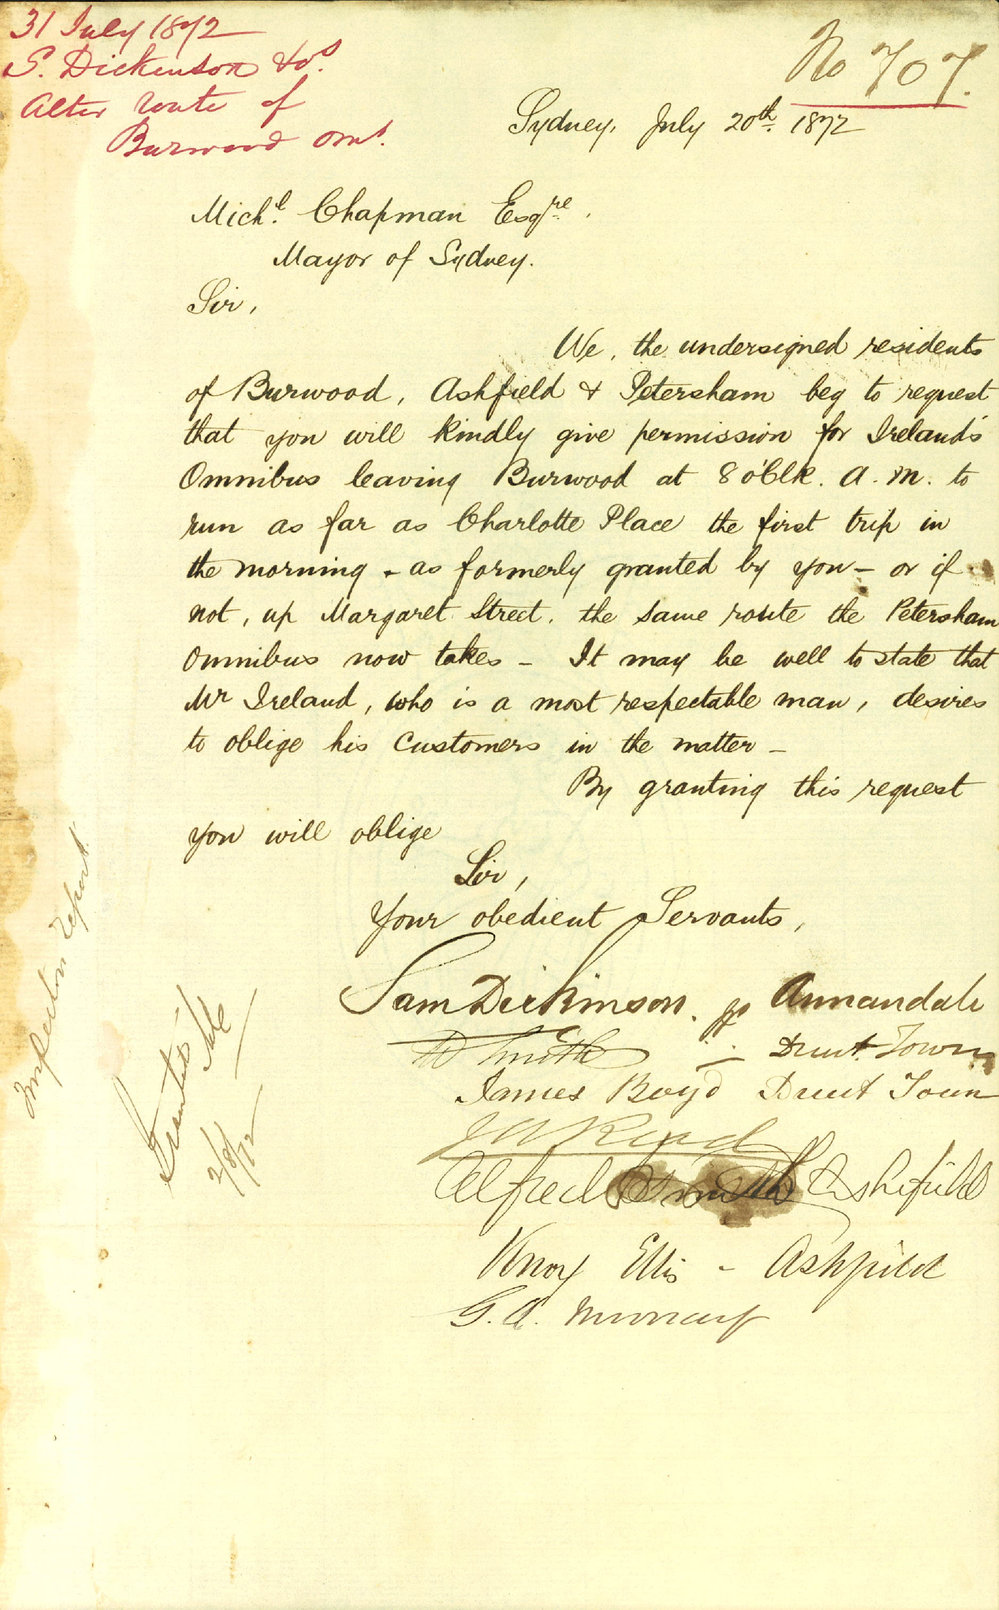 31 July 1872
S. Dickenson & ors.
Alter route of
Burwood Oms.
No 707.
Sydney, July 20th 1872
Michl. Chapman Esqre.
Mayor of Sydney.
Sir,
We, the undersigned residents
of Burwood, Ashfield & Petersham beg to request
that you will kindly give permission for Ireland's
Omnibus leaving Burwood at 8 o'Clk. A.M. to
run as far as Charlotte Place the first trip in
the morning - as formerly granted by you - or if
not, up Margaret Street, the same route the Petersham
Omnibus now takes - It may be well to state that
Mr Ireland, who is a most respectable man, desires
to oblige his customers in the matter -
By granting this request
you will oblige
Sir,
Your obedient Servants,
Sam Dickinson. JP Annandale
Smith - Druitt Town
James Boyd Druitt Town
Alfred Smith Ashfield
Knox Ellis - Ashfield
G. A. Murray
Inspector Report
Granted
2/8/72